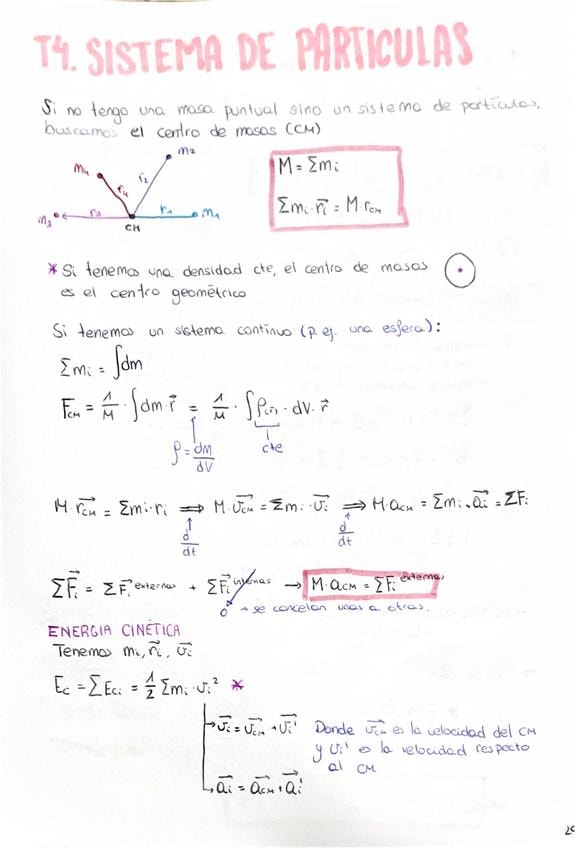 T4. SISTEMA DE PARTICULAS
Si no tengo una masa puntual sino un sistema de partículas,
buscamos el centro de masas (CM)
m₄ r₄ r₂ m₂
m₃ r₃ r₁ m₁
CM
M = Σmᵢ
Σmᵢ·r⃗ᵢ = M·r_CM
* Si tenemos una densidad cte, el centro de masas
es el centro geométrico
Si tenemos un sistema contínuo (p. ej. una esfera):
Σmᵢ = ∫dm
r⃗_CM = 1/M · ∫dm·r⃗ = 1/M · ∫ρ(r)·dV·r⃗
ρ = dm/dV
cte
M·r⃗_CM = Σmᵢ·rᵢ ⟹ M·v⃗_CM = Σmᵢ·v⃗ᵢ ⟹ M·a_CM = Σmᵢ·a⃗ᵢ = ΣFᵢ
d/dt d/dt
ΣF⃗ᵢ = ΣF⃗ᵢ externas + ΣF⃗ᵢ internas → M·a_CM = ΣFᵢ externas
0 → se cancelan unas a otras.
ENERGIA CINÉTICA
Tenemos mᵢ, r⃗ᵢ, v⃗ᵢ
Ec = ΣEcᵢ = 1/2 Σmᵢ·vᵢ² *
v⃗ᵢ = v⃗_CM + v⃗ᵢ' Donde v⃗_CM es la velocidad del CM
y vᵢ' es la velocidad respecto
al CM
a⃗ᵢ = a⃗_CM + a⃗ᵢ'